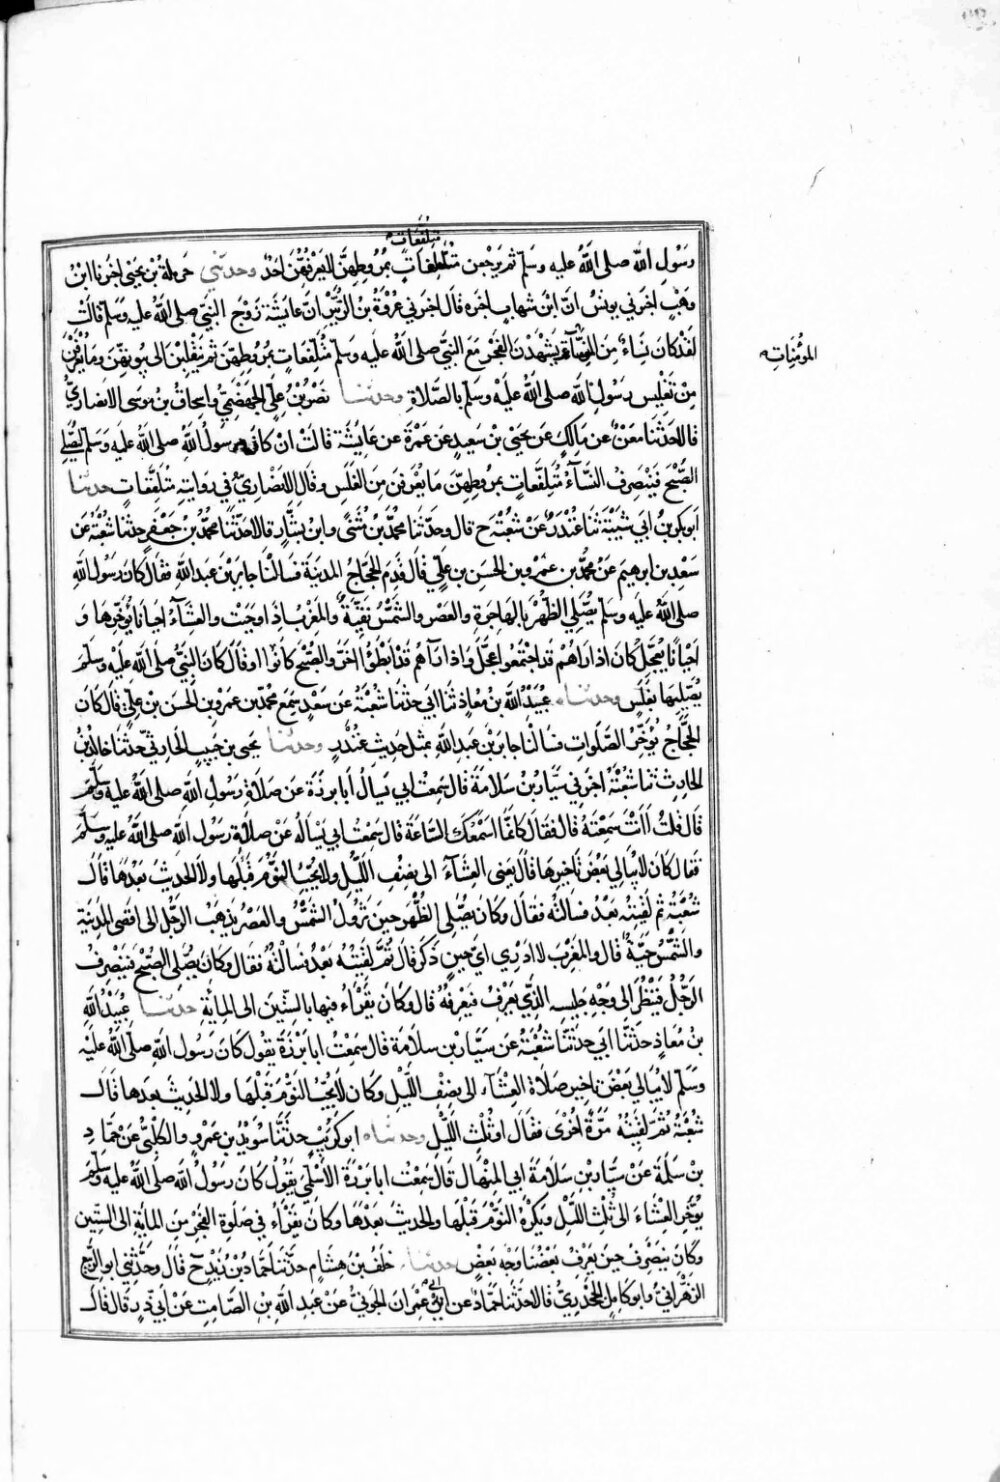 متلفعات
رسول الله صلى الله عليه وسلم ثم يرجعن متلففات بمروطهن لايعرفهن احد وحدثني حرملة بن يحيى اخبرنا ابن
وهب اخبرني يونس ان ابن شهاب اخبره قال اخبرني عروة بن الزبير ان عايشة زوج النبي صلى الله عليه وسلم قالت
لقد كان نساء من يشهدن الفجر مع النبي صلى الله عليه وسلم متلفعات بمروطهن ثم ينقلبن الى بيوتهن وما يعرفن
المومنات
من تغليس رسول الله صلى الله عليه وسلم بالصلاة وحدثنا نصر بن علي الجهضمي واسحاق بن موسى الانصاري
قالا حدثنا معن عن مالك عن يحيى بن سعيد عن عمرة عن عايشة قالت ان كان رسول الله صلى الله عليه وسلم ليصلي
الصبح فينصرف النسآء متلفعات بمروطهن ما يعرفن من الغلس وقال الانصاري في روايته متلففات حدثنا
ابو بكر بن ابي شيبة ثنا غندر عن شعبة ح قال وحدثنا محمد بن مثنى وابن بشار قالا حدثنا محمد بن جعفر حدثنا شعبة عن
سعد بن ابرهيم عن محمد بن عمرو بن الحسن بن علي قال قدم الحجاج المدينة فسالنا جابر بن عبد الله فقال كان رسول الله
صلى الله عليه وسلم يصلي الظهر بالهاجرة والعصر والشمس نقية والمغرب اذا وجبت والعشآء احيانا يؤخرها و
احيانا يعجل كان اذا راهم قد اجتمعوا عجل واذا رآهم قد ابطؤا اخر والصبح كانوا او قال كان النبي صلى الله عليه وسلم
يصليها بغلس وحدثناه عبيد الله بن معاذ ثنا ابي حدثنا شعبة عن سعد سمع محمد بن عمرو بن الحسن بن علي قال كان
الحجاج يؤخر الصلوات فسالنا جابر بن عبد الله بمثل حديث غندر وحدثنا يحيى بن حبيب الحارثي حدثنا خالد بن
الحارث ثنا شعبة اخبرني سيار بن سلامة قال سمعت ابي يسال ابا برزة عن صلاة رسول الله صلى الله عليه وسلم
قال قلت اانت سمعته قال فقال كانما اسمعك الساعة قال سمعت ابي يساله عن صلاة رسول الله صلى الله عليه وسلم
فقال كان لا يبالي بعض تاخيرها قال يعني العشآء الى نصف الليل ولا يحب النوم قبلها ولا الحديث بعدها قال
شعبة ثم لقيته بعد فسالته فقال وكان يصلي الظهر حين تزول الشمس والعصر يذهب الرجل الى اقصى المدينة
والشمس حية قال والمغرب لا ادري اي حين ذكر قال ثم لقيته بعد فسالته فقال وكان يصلي الصبح فينصرف
الرجل فينظر الى وجه جليسه الذي يعرف فيعرفه قال وكان يقراء فيها بالستين الى الماية حدثنا عبيد الله
بن معاذ حدثنا ابي حدثنا شعبة عن سيار بن سلامة قال سمعت ابا برزة يقول كان رسول الله صلى الله عليه
وسلم لا يبالي بعض تاخير صلاة العشآء الى نصف الليل وكان لا يحب النوم قبلها ولا الحديث بعدها قال
شعبة ثم لقيته مرة اخرى فقال او ثلث الليل وحدثناه ابو كريب حدثنا سويد بن عمرو الكلبي عن حماد
بن سلمة عن سيار بن سلامة ابي المنهال قال سمعت ابا برزة الاسلمي يقول كان رسول الله صلى الله عليه وسلم
يؤخر العشاء الى ثلث الليل ويكره النوم قبلها والحديث بعدها وكان يقراء في صلوة الفجر من الماية الى الستين
وكان ينصرف حين يعرف بعضنا وجه بعض حدثنا خلف بن هشام حدثنا حماد بن زيد ح قال وحدثني ابو الربيع
الزهراني وابو كامل الجحدري قالا حدثنا حماد عن ابي عمران الجوني عن عبد الله بن الصامت عن ابي ذر قال قال